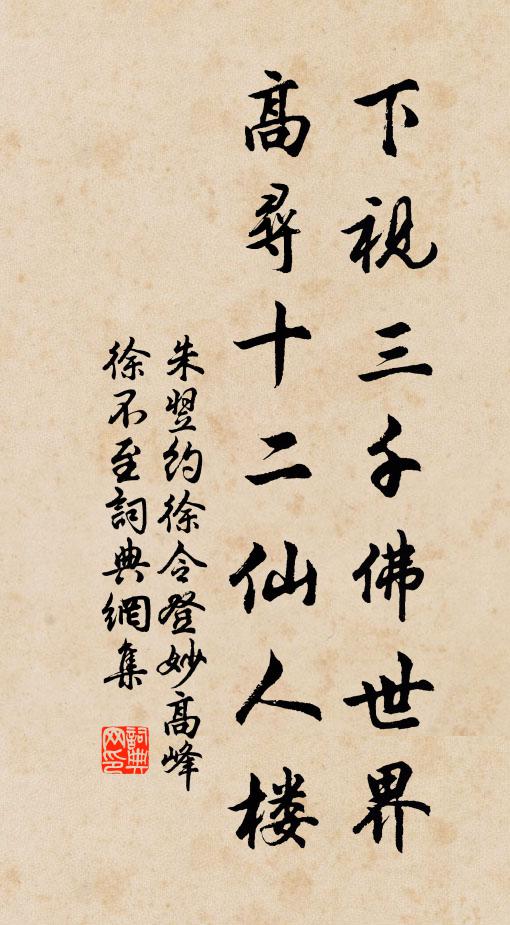 下視三千佛世界
高尋十二仙人楼
朱翌約徐令登妙高峰
徐不至詞典網集
詞典网印